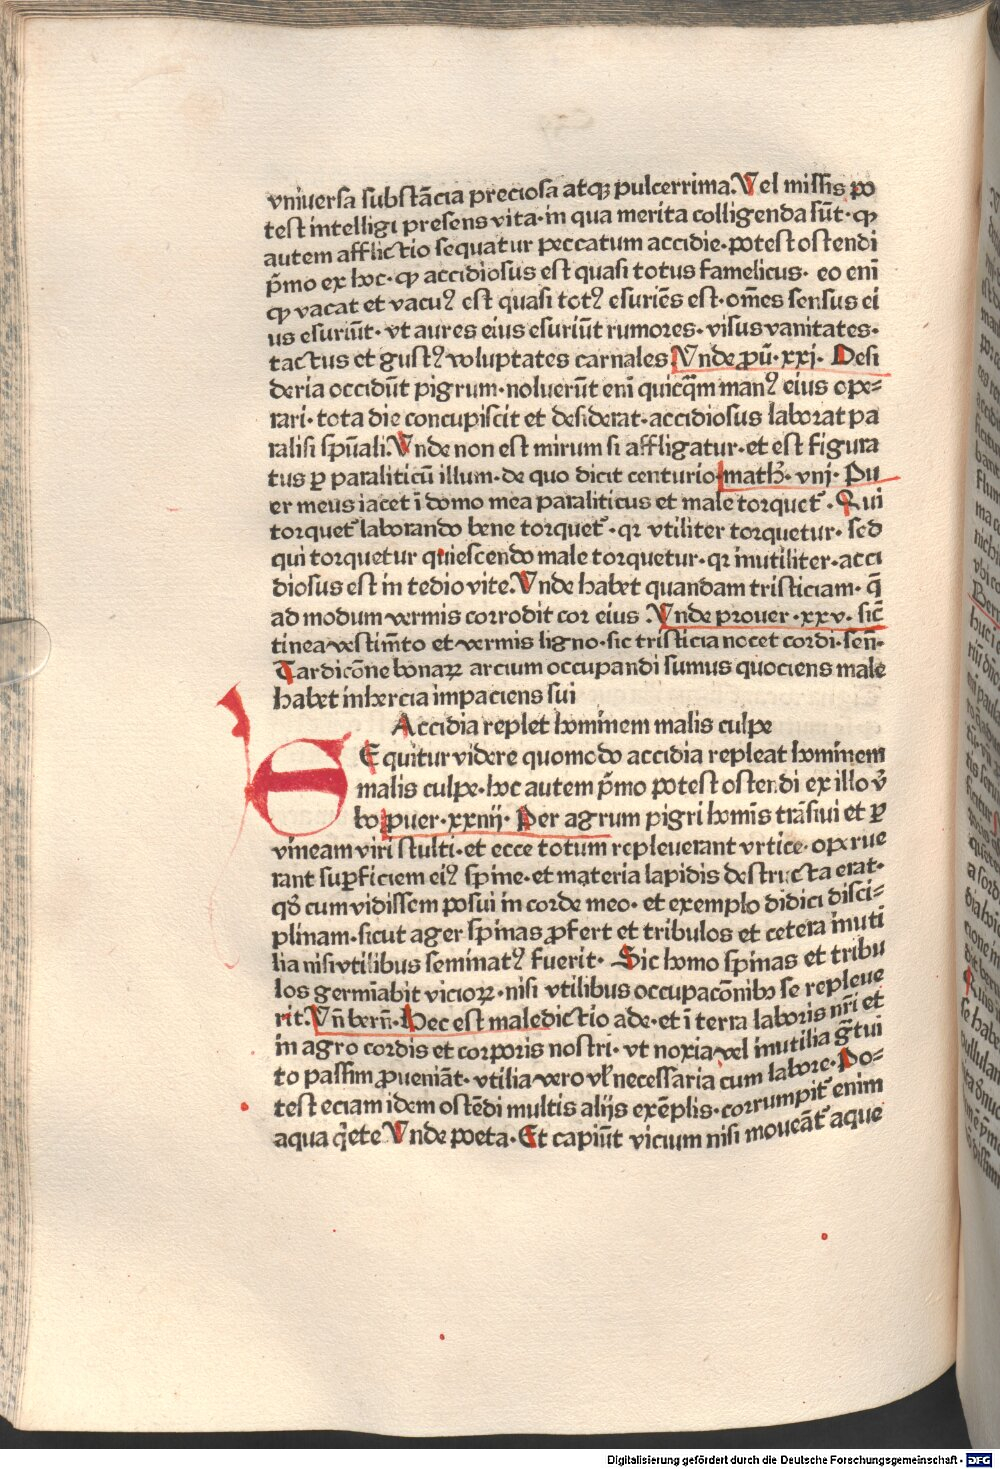 vniuersa substãcia preciosa atqꝫ pulcerrima. Vel missis po
test intelligi presens vita· in qua merita colligenda sũt· ꝙ
autem afflictio sequatur peccatum accidie· potest ostendi
p̃mo ex hoc· ꝙ accidiosus est quasi totus famelicus· eo eni̅
ꝙ vacat et vacuꝰ est quasi totꝰ esuriẽs est· om̃es sensus ei
us esuriũt· vt aures eius esuriũt rumores· visus vanitates·
tactus et gustꝰ voluptates carnales Vnde ꝓũ· xxj· Desi
deria occidũt pigrum· noluerũt eni̅ quicq̃m manꝰ eius ope⸗
rari· tota die concupiscit et desiderat· accidiosus laborat pa
ralisi sp̃uali. Vnde non est mirum si affligatur· et est figura
tus ꝑ paraliticũ illum· de quo dicit centurio· math̃· vnj· Pu
er meus iacet ĩ domo mea paraliticus et male torquet̃· Qui
torquet̃ laborando bene torquet̃· qr vtiliter torquetur· sed
qui torquetur quiescendo male torquetur· qr inutiliter· acci
diosus est in tedio vite. Vnde habet quandam tristiciam· q̃
ad modum vermis corrodit cor eius· Vnde prouer· xxv· sic̃
tinea vestim̃to et vermis ligno· sic tristicia nocet cordi· sen̅·
Tardicõne bonaꝝ arcium occupandi sumus quociens male
habet inhercia impaciens sui
Accidia replet hominem malis culpe
SEquitur videre quomodo accidia repleat hominem
malis culpe· hoc autem p̃mo potest ostendi ex illo v̅
bo ꝓuer· xxnij· Per agrum pigri homi̅s trãsiui et ꝑ
vineam viri stulti· et ecce totum repleuerant vrtice· operue
rant suꝑficiem eiꝰ spine· et materia lapidis destructa erat·
qđ cum vidissem posui in corde meo· et exemplo didici disci⸗
plinam· sicut ager spinas ꝓfert et tribulos et cetera inuti
lia nisi vtilibus seminatꝰ fuerit· Sic homo spinas et tribu
los germi̅abit vicioꝝ· nisi vtilibus occupacõnibꝫ se repleue
rit. Vn̅ bern̅· Hec est maledictio ade· et ĩ terra laboris nr̃i et
in agro cordis et corporis nostri· vt noxia vel inutilia gr̃tui
to passim ꝓueniãt· vtilia vero vl̃ necessaria cum labore· Po⸗
test eciam idem ostẽdi multis alijs exẽplis· corrumpit̃ enim
aqua q̃ete Vnde poeta· Et capiũt vicium nisi moueãt̃ aque
Digitalisierung gefördert durch die Deutsche Forschungsgemeinschaft - DFG